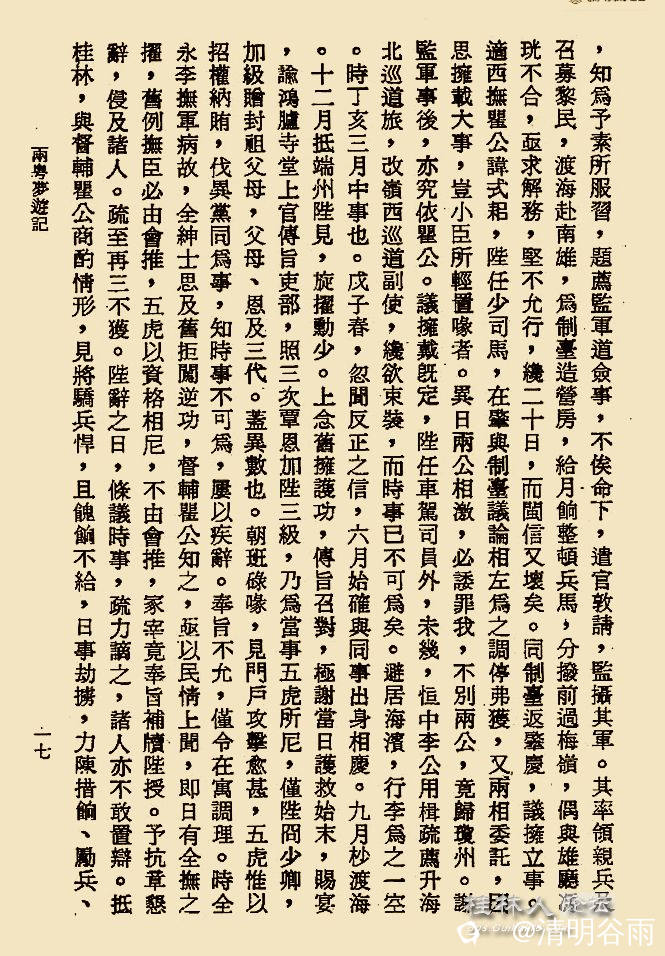 ，知爲予素所服習，題薦監軍道僉事，不俟命下，遣官敦請，監攝其軍。其率領親兵
召募黎民，渡海赴南雄，爲制臺造營房，給月餉整頓兵馬，分撥前過梅嶺，偶與雄廳
珖不合，亟求解務，堅不允行，纔二十日，而閩信又壞矣。同制臺返肇慶，議擁立事。
適西撫瞿公諱式耜，陞任少司馬，在肇與制臺議論相左爲之調停弗獲，又兩相委託，因
思擁載大事，豈小臣所輕置喙者。異日兩公相激，必諉罪我，不別兩公，竟歸瓊州。
監軍事後，亦究依瞿公。議擁戴旣定，陞任車駕司員外，未幾，恒中李公用楫疏薦升海
北巡道旅，改嶺西巡道副使，纔欲束裝，而時事已不可爲矣。避居海濱，行李爲之一空
。時丁亥三月中事也。戊子春，忽聞反正之信，六月始確與同事出身相慶。九月杪渡海
。十二月抵端州陛見，旋擢勳少。上念舊擁護功，傳旨召對，極謝當日護救始末，賜宴
，諭鴻臚寺堂上官傳旨吏部，照三次覃恩加陞三級，乃爲當事五虎所尼，僅陞冏少卿，
加級贈封祖父母，父母、恩及三代。蓋異數也。朝班碌喙，見門戶攻擊愈甚，五虎惟以
招權納賄，伐異黨同爲事，知時事不可爲，屢以疾辭。奉旨不允，僅令在寓調理。時全
永李撫軍病故，全紳士思及舊拒闖逆功，督輔瞿公知之，亟以民情上聞，卽日有全撫之
擢，舊例撫臣必由會推，五虎以資格相尼，不由會推，冢宰竟奉旨補牘陞授。予抗章懇
辭，侵及諸人。疏至再三不獲。陛辭之日，條議時事，疏力謫之，諸人亦不敢置辯。抵
桂林，與督輔瞿公商酌情形，見將驕兵悍，且餽餉不給，日事劫擄，力陳措餉、勵兵、
兩粵夢遊記
一七
桂林人论坛
@清明谷雨